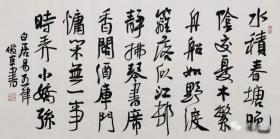 水積春塘晚
陰交夏木繁
舟船如野渡
籬落似江邨
靜拂琴書席
香開酒庫門
慵閑無一事
時弄小嬌孫
白居易五律
書